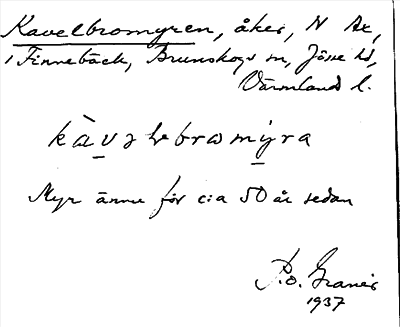 Kavelbromyren, åker, N Ax,
i Finnebäck, Brunskogs sn, Jösse hd,
Värmlands l.
kàvəlbromýra
Myr ännu för c:a 50 år sedan
P.o. Granér
1937